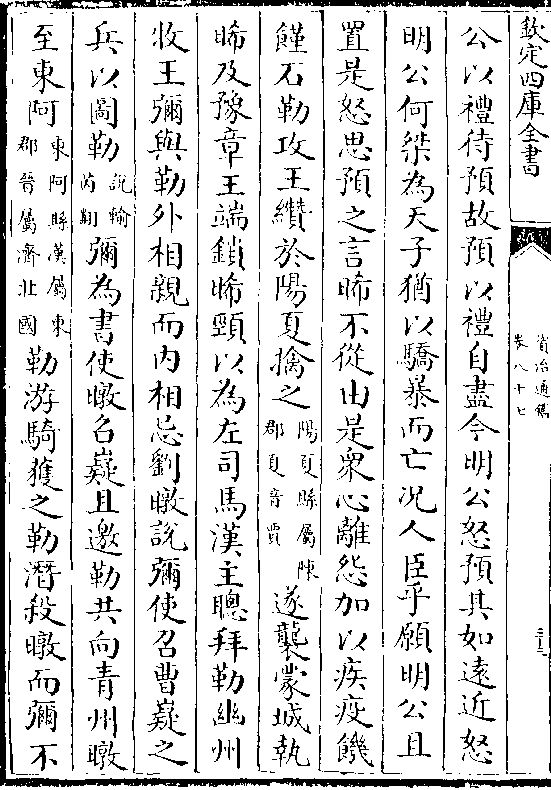 欽定四庫全書
資治通鑑
卷八十七
公以禮待預故預以禮自盡今明公怒預其如遠近怒
明公何桀為天子猶以驕暴而亡况人臣乎願明公且
置是怒思預之言晞不從由是衆心離怨加以疾疫饑
饉石勒攻王讚於陽夏擒之陽夏縣屬陳郡夏音賈遂襲蒙城執
晞及豫章王端鎖晞頸以為左司馬漢主聰拜勒幽州
牧王彌與勒外相親而内相忌劉暾說彌使召曹嶷之
兵以圖勒說輸芮翻彌為書使暾召嶷且邀勒共向青州暾
至東阿東阿縣漢屬東郡晉屬濟北國勒游騎獲之勒潛殺暾而彌不